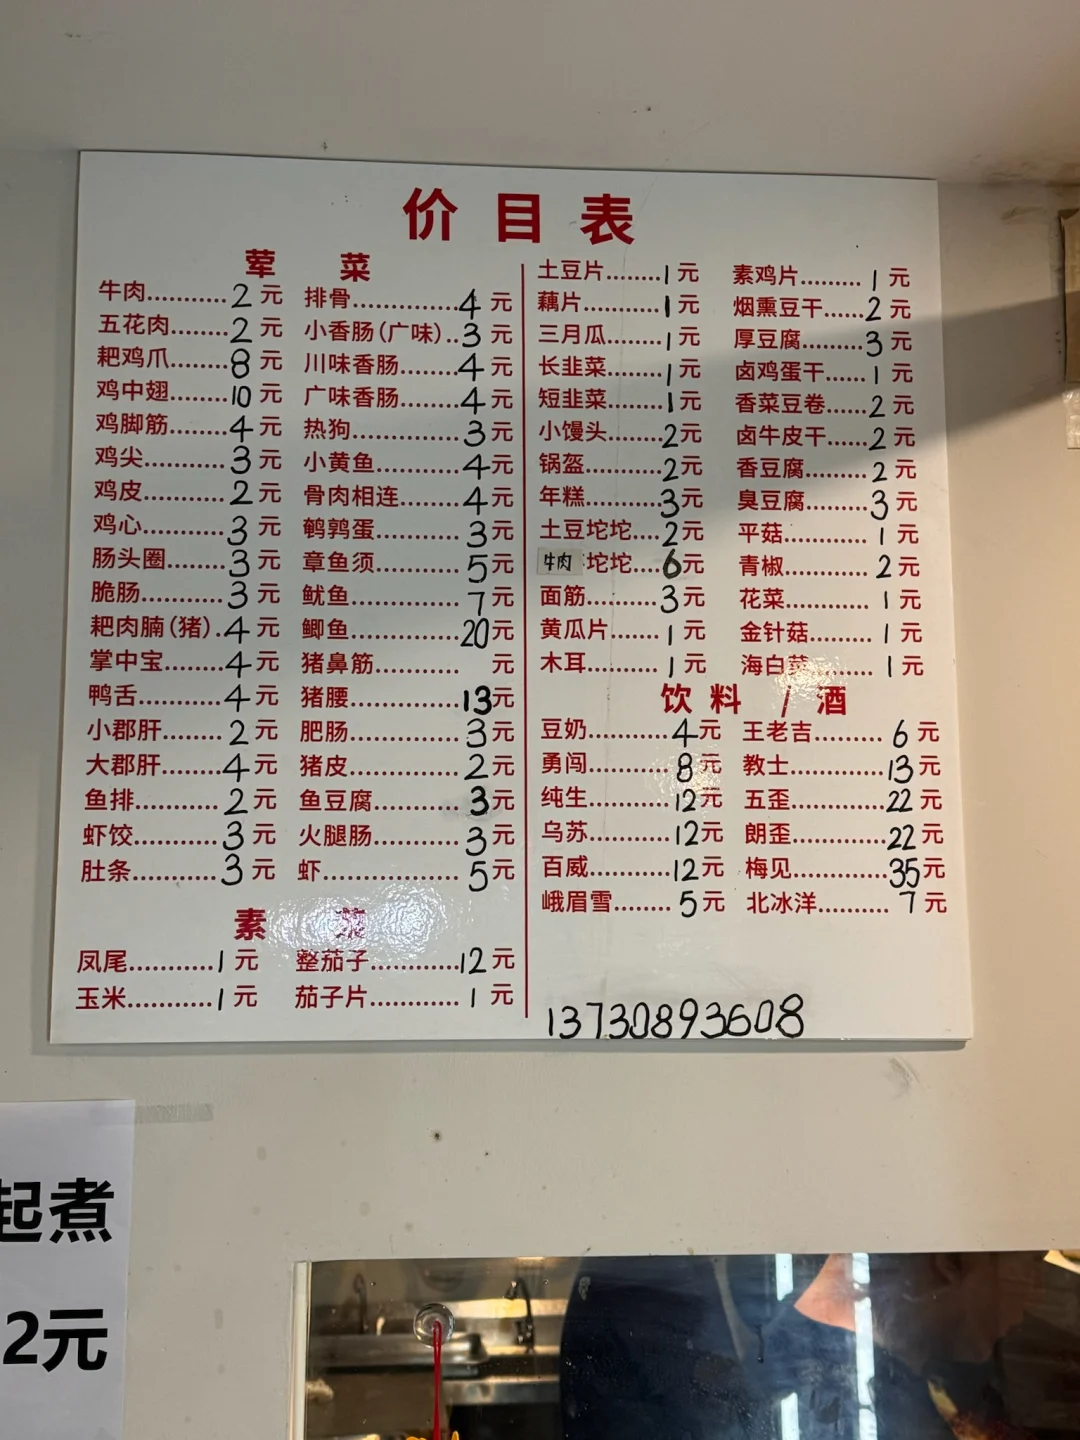 价目表
荤 菜
牛肉...........2元
五花肉........2元
耙鸡爪........8元
鸡中翅........10元
鸡脚筋........4元
鸡尖...........3元
鸡皮...........2元
鸡心...........3元
肠头圈........3元
脆肠...........3元
耙肉腩(猪).4元
掌中宝........4元
鸭舌...........4元
小郡肝........2元
大郡肝........4元
鱼排...........2元
虾饺...........3元
肚条...........3元
排骨..............4元
小香肠(广味)..3元
川味香肠........4元
广味香肠........4元
热狗..............3元
小黄鱼...........4元
骨肉相连........4元
鹌鹑蛋...........3元
章鱼须...........5元
鱿鱼..............7元
鲫鱼..............20元
猪鼻筋........... 元
猪腰..............13元
肥肠..............3元
猪皮..............2元
鱼豆腐...........3元
火腿肠...........3元
虾.................5元
素 菜
凤尾...........1元
玉米...........1元
整茄子...........12元
茄子片...........1元
土豆片........1元
藕片...........1元
三月瓜........1元
长韭菜........1元
短韭菜........1元
小馒头........2元
锅盔...........2元
年糕...........3元
土豆坨坨....2元
牛肉坨坨....6元
面筋...........3元
黄瓜片........1元
木耳...........1元
素鸡片...........1元
烟熏豆干......2元
厚豆腐.........3元
卤鸡蛋干......1元
香菜豆卷......2元
卤牛皮干......2元
香豆腐.........2元
臭豆腐.........3元
平菇............1元
青椒............2元
花菜............1元
金针菇.........1元
海白菜.........1元
饮料/酒
豆奶...........4元
勇闯...........8元
纯生...........12元
乌苏...........12元
百威...........12元
峨眉雪........5元
王老吉.........6元
教士............13元
五歪............22元
朗歪............22元
梅见............35元
北冰洋.........7元
13730893608
起煮
2元